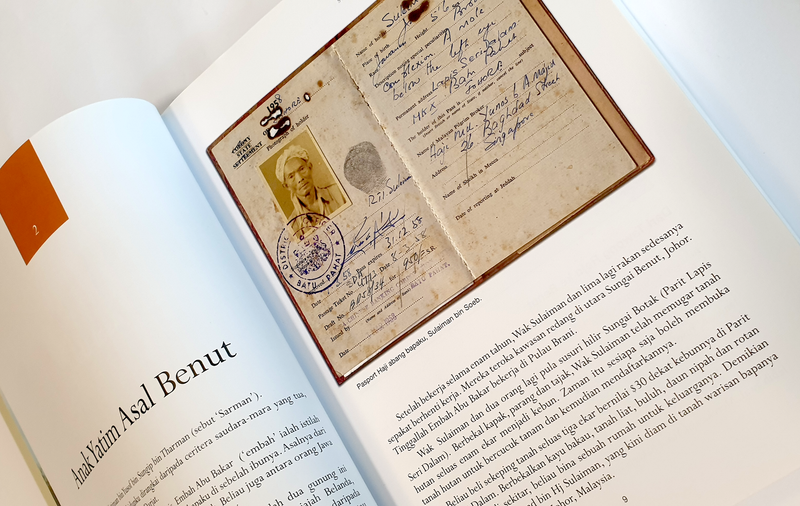 2
Anak Yatim Asal Benut
bin Sungip bin Tharman (sebut 'Sarman').
dirangkai daripada ceritera saudara-mara yang tua,
Embah Abu Bakar ('embah' ialah istilah
di sebelah ibunya. Asalnya dari
Beliau juga antara orang Jawa
dua gunung ini
Belanda,
daripada
1958
STATE
SETTLEMENT
Photograph of holder
BATU PAHAT
Pass expires 31.12.58
Date 8.2.58
Passage Ticket No.
Draft No.
Issued by
Date
Name of
Place of birth
Race
Height 5' 6"
Complexion
A mole
below the left eye
Permanent address Lapis Seri Dalam
Batu Pahat
Johore
The holder of this Pass is
Name of Malayan Pilgrim Broker
Haji Md. Yunos b. A. Majid
Address 26 Baghdad Street
Singapore
Name of Sheikh in Mecca
Date of reporting at Jeddah
Pasport Haji abang bapaku, Sulaiman bin Soeb.
Setelah bekerja selama enam tahun, Wak Sulaiman dan lima lagi rakan sedesanya
sepakat berhenti kerja. Mereka teroka kawasan redang di utara Sungai Benut, Johor.
Tinggallah Embah Abu Bakar bekerja di Pulau Brani.
Wak Sulaiman dan dua orang lagi pula susuri hilir Sungai Botak (Parit Lapis
Seri Dalam). Berbekal kapak, parang dan tajak, Wak Sulaiman telah memugar tanah
hutan seluas enam ekar menjadi kebun. Zaman itu sesiapa saja boleh membuka
tanah hutan untuk bercucuk tanam dan kemudian mendaftarkannya.
Beliau beli sekeping tanah seluas tiga ekar bernilai $30 dekat kebunnya di Parit
Dalam. Berbekalkan kayu bakau, tanah liat, buluh, daun nipah dan rotan
di sekitar, beliau bina sebuah rumah untuk keluarganya. Demikian
bin Hj Sulaiman, yang kini diam di tanah warisan bapanya
Johor, Malaysia.
9